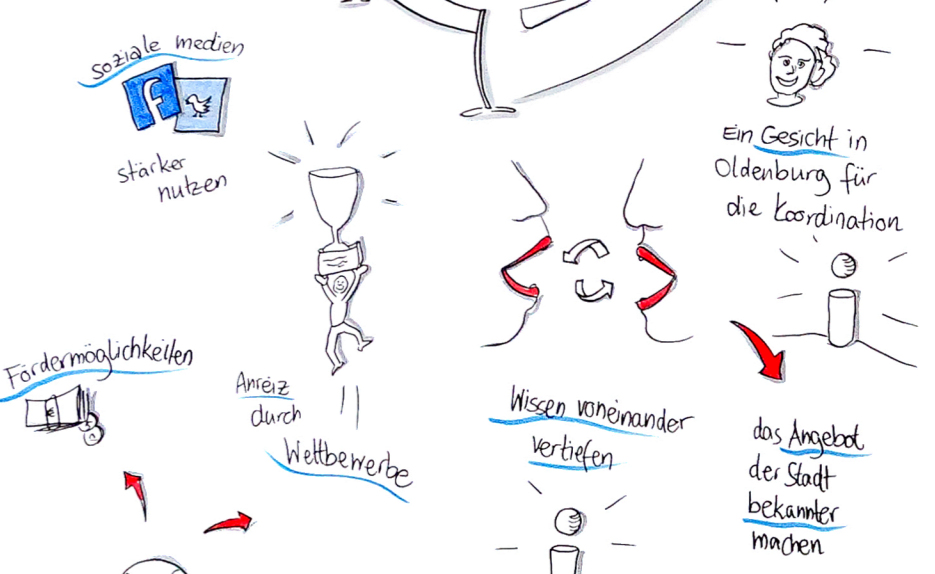 soziale medien
stärker
nutzen
Ein Gesicht in
Oldenburg für
die Koordination
Fördermöglichkeiten
€
Anreiz
durch
Wettbewerbe
Wissen voneinander
vertiefen
das Angebot
der Stadt
bekannter
machen